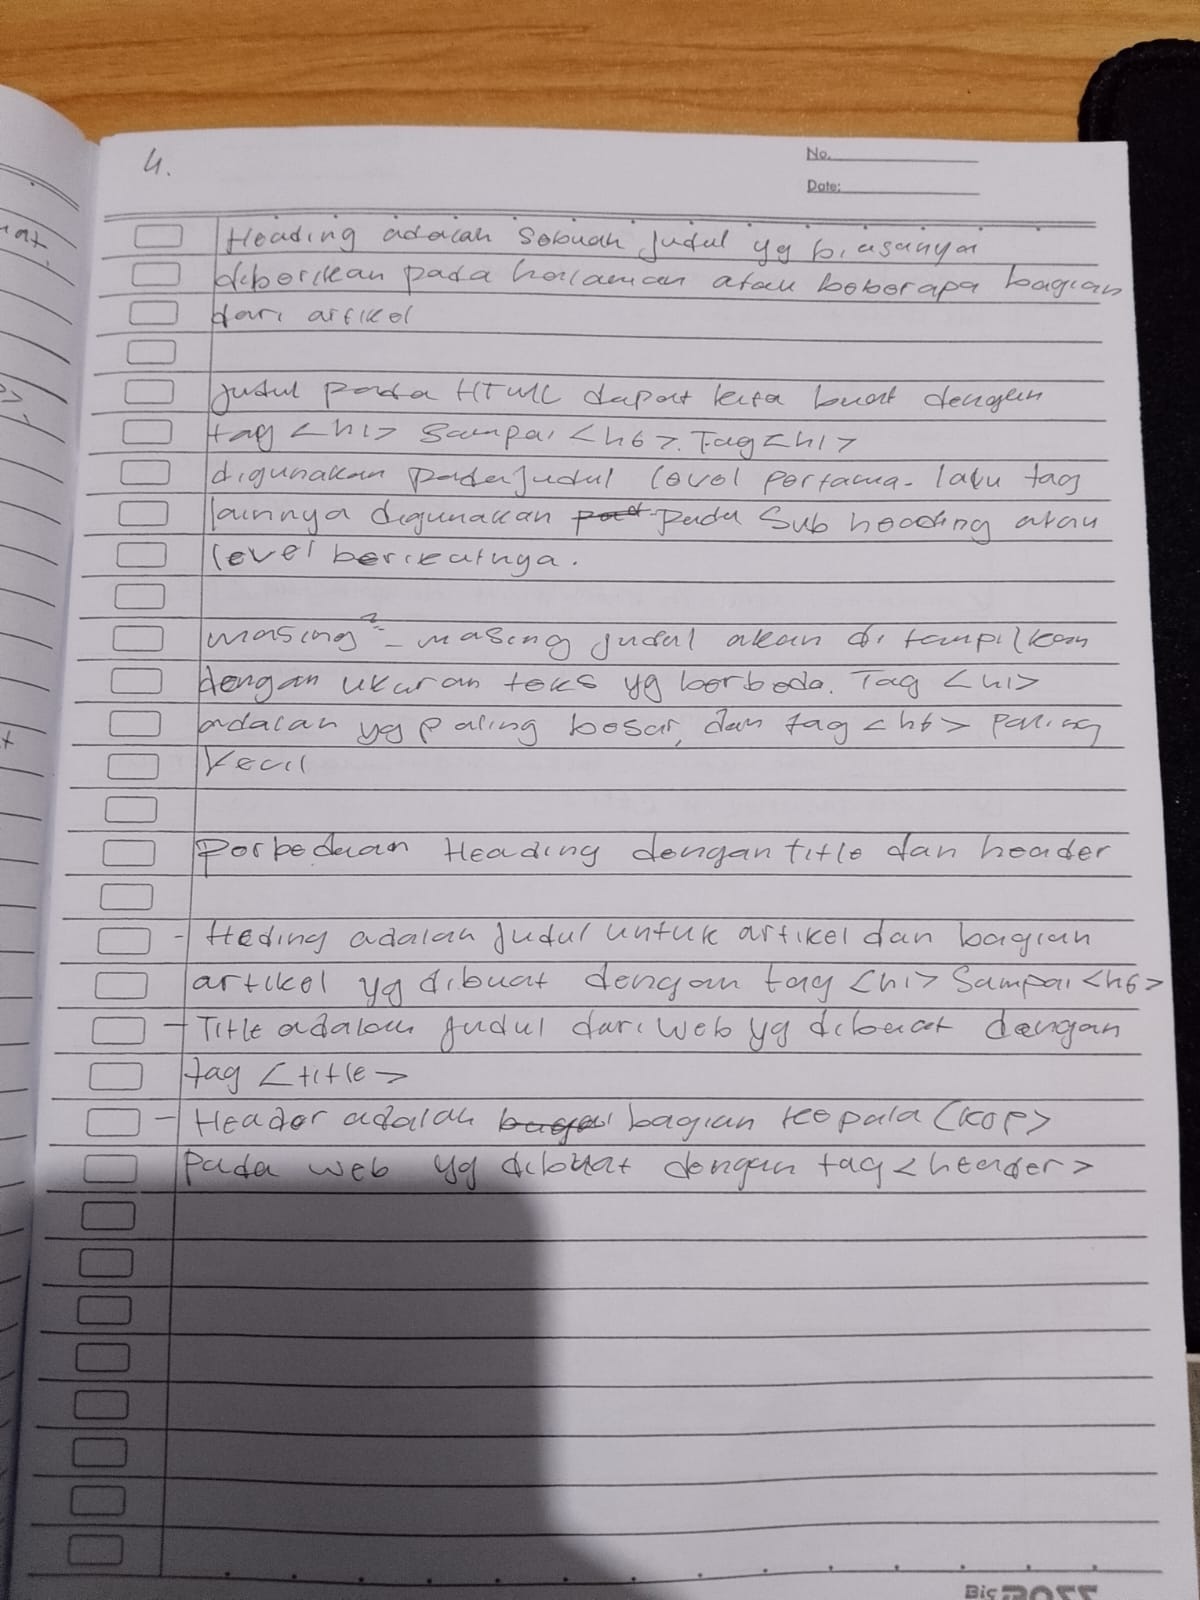 4.
No.
Date:
Heading adalah sebuah judul yg biasanya
diberikan pada halaman atau beberapa bagian
dari artikel
judul pada HTML dapat kita buat dengan
tag <h1> sampai <h6>. Tag <h1>
digunakan pada judul level pertama. lalu tag
lainnya digunakan pada Sub heading atau
level berikutnya.
masing2 - masing judul akan di tampilkan
dengan ukuran teks yg berbeda. Tag <h1>
adalah yg paling besar, dan tag <h6> paling
Kecil
Perbedaan Heading dengan title dan header
- Heding adalah judul untuk artikel dan bagian
artikel yg dibuat dengan tag <h1> Sampai <h6>
- Title adalah judul dari web yg dibuat dengan
tag <title>
- Header adalah bagian kepala (kop>
pada web yg dibuat dengan tag <header>
Big BOSS